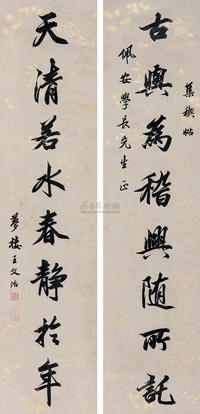 集禊帖
佩安學長先生正
古與為稽興随所託
天清若水春靜於年
夢樓王文治